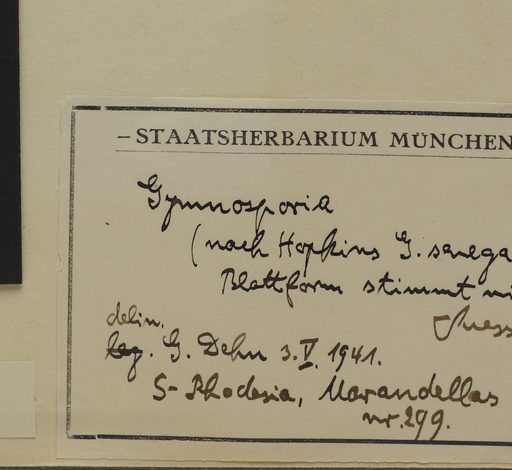 – STAATSHERBARIUM MÜNCHEN
Gymnosporia
(nach Hopkins G. senega
Blattform stimmt ni
Suess
delin.
leg. G. Dehn 3.V.1941.
S-Rhodesia, Marandellas
nr.299.